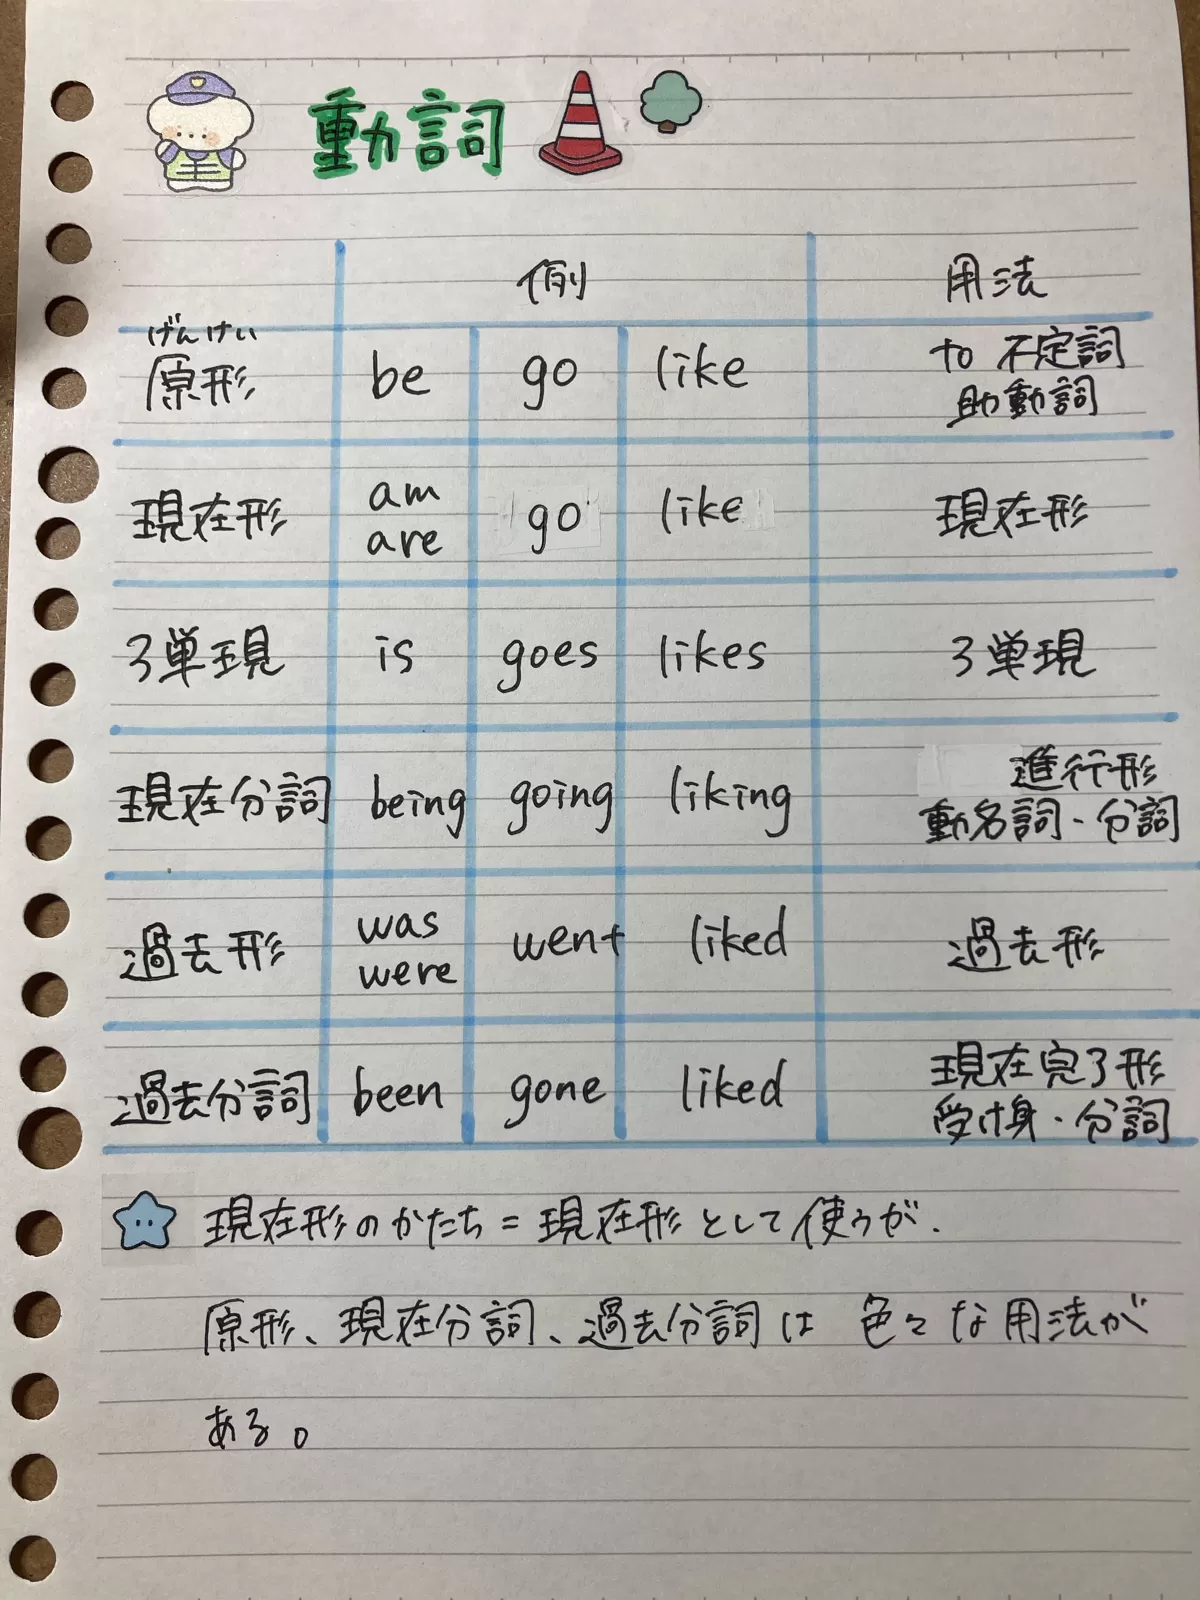 動詞
例 用法
げんけい
原形 be go like to 不定詞
助動詞
現在形 am go like 現在形
are
3単現 is goes likes 3単現
現在分詞 being going liking 進行形
動名詞・分詞
過去形 was went liked 過去形
were
過去分詞 been gone liked 現在完了形
受け身・分詞
現在形のかたち=現在形として使うが、
原形、現在分詞、過去分詞は 色々な用法が
ある。